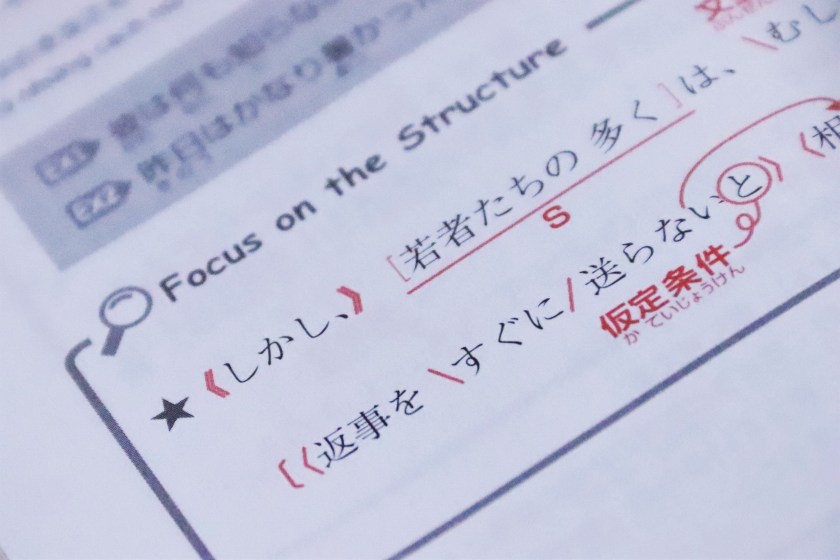 EX1 彼は何も知らな
EX2 昨日はかなり暑かった
Focus on the Structure
★《しかし、》[若者たちの 多く]は、\むし
S
[〈返事を \すぐに/ 送らないと〉〈相
仮定条件
かていじょうけん